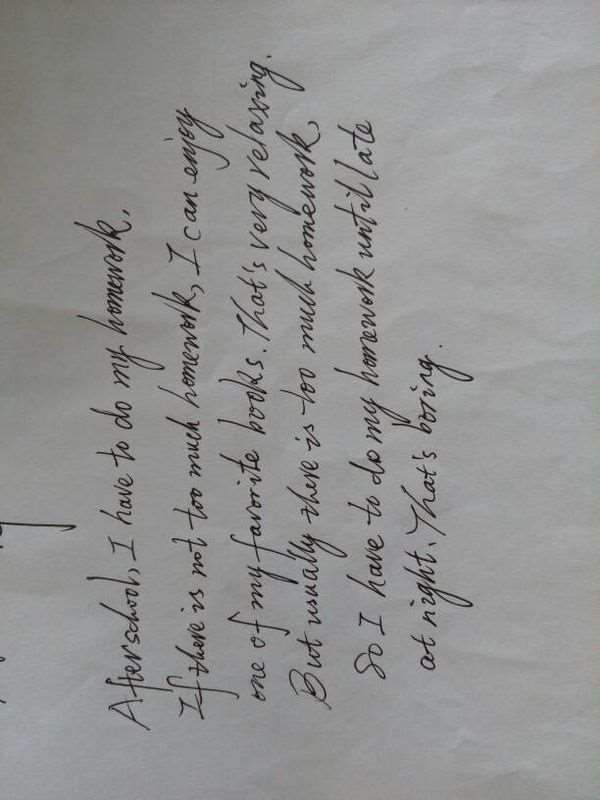 After school, I have to do my homework.
If there is not too much homework, I can enjoy
one of my favorite books. That's very relaxing.
But usually there is too much homework,
So I have to do my homework until late
at night. That's boring.